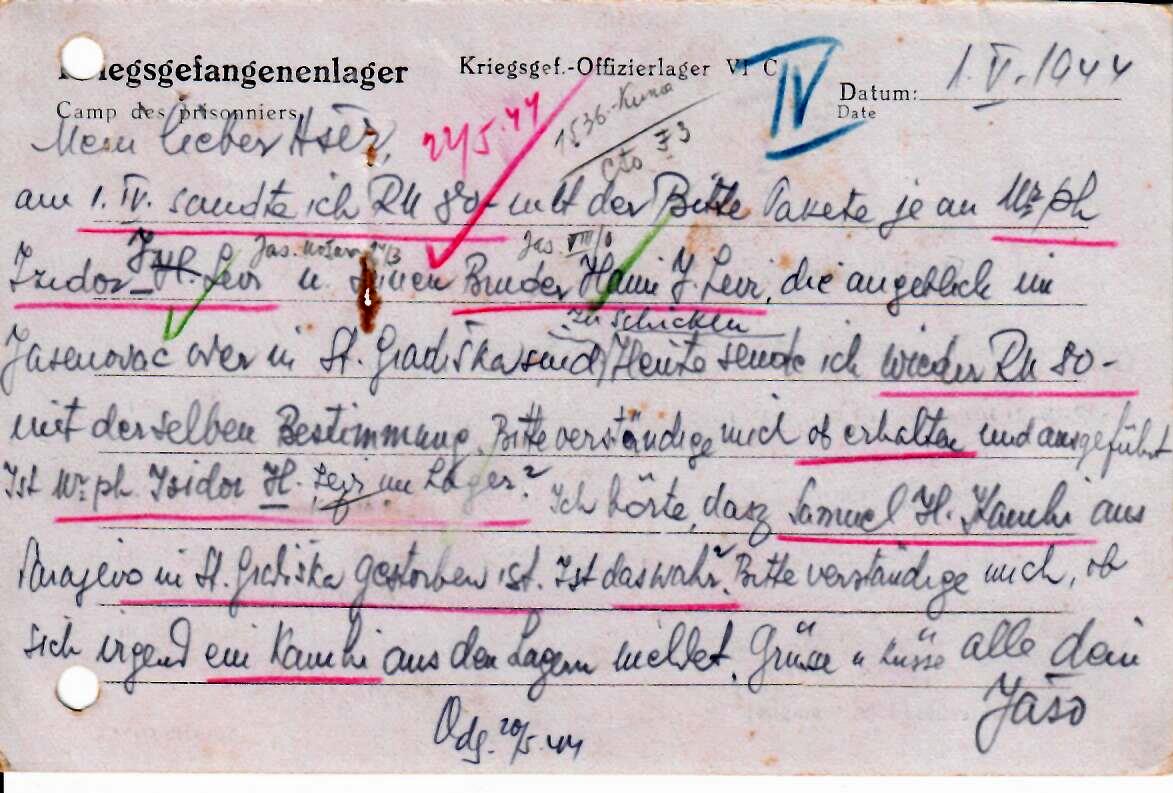 Kriegsgefangenenlager Kriegsgef.-Offizierlager VI C IV Datum: 1.V.1944
Camp des prisonniers Date
Mein lieber 24/5.44 1536.-Kuna
cto
am 1. IV. sandte ich RM 80.- mit der Bitte Pakete je an
Jas. Jas. VIII/
Isidor J. H. Levi u. seinen Bruder Haim J. Levi, die angeblich in
zu schicken
Jasenovac oder in St. Gradiška sind. Heute sende ich wieder RM 80-
mit derselben Bestimmung. Bitte verständige mich ob erhalten und ausgeführt
Ist Isidor H. Levi im Lager? Ich hörte, dasz Samuel H. Kamhi aus
Sarajevo in St. Gradiška gestorben ist. Ist das wahr? Bitte verständige mich, ob
sich irgend ein Kamhi aus den Lagern meldet. Grüsse u Küsse alle dein
Jašo
Odg. 20/5.44